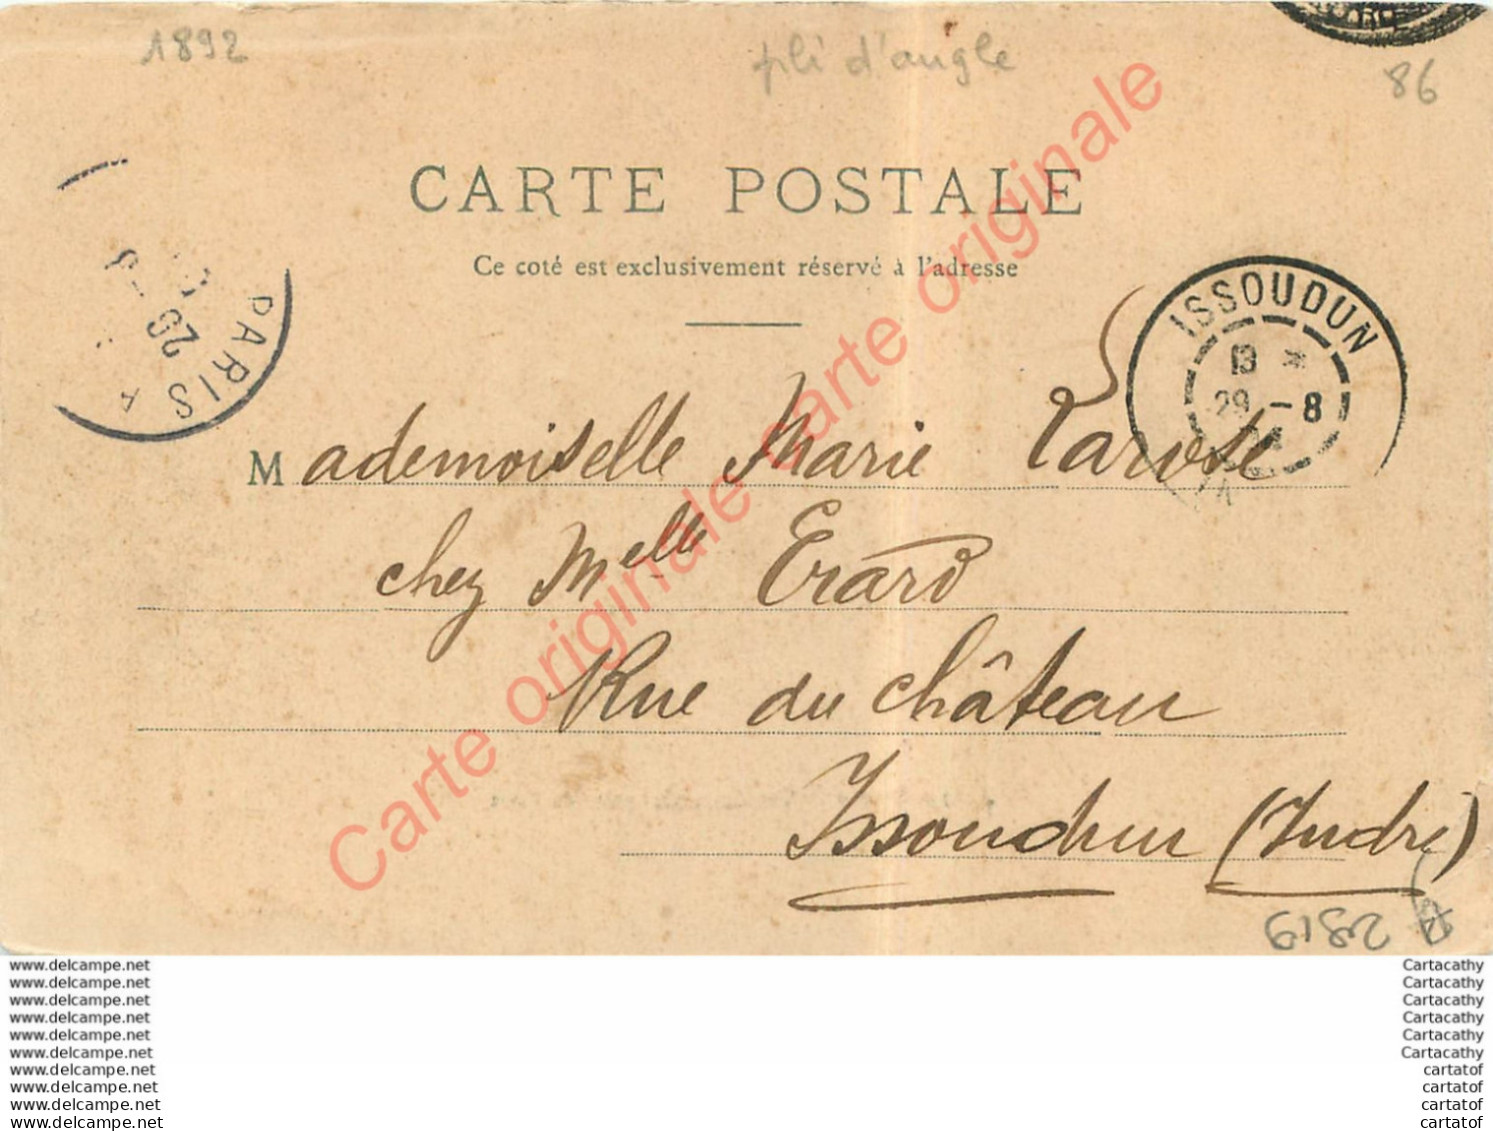 1892
pli d'angle
86
CARTE POSTALE
Ce coté est exclusivement réservé à l'adresse
PARIS
ISSOUDUN
13 *
29 - 8
04
Mademoiselle Marie Larose
chez Melle Erard
Rue du château
Issoudun (Indre)
2819
Carte originale Carte originale Carte originale
www.delcampe.net Cartacathy
www.delcampe.net Cartacathy
www.delcampe.net Cartacathy
www.delcampe.net Cartacathy
www.delcampe.net Cartacathy
www.delcampe.net Cartacathy
www.delcampe.net cartatof
www.delcampe.net cartatof
www.delcampe.net cartatof
www.delcampe.net cartatof